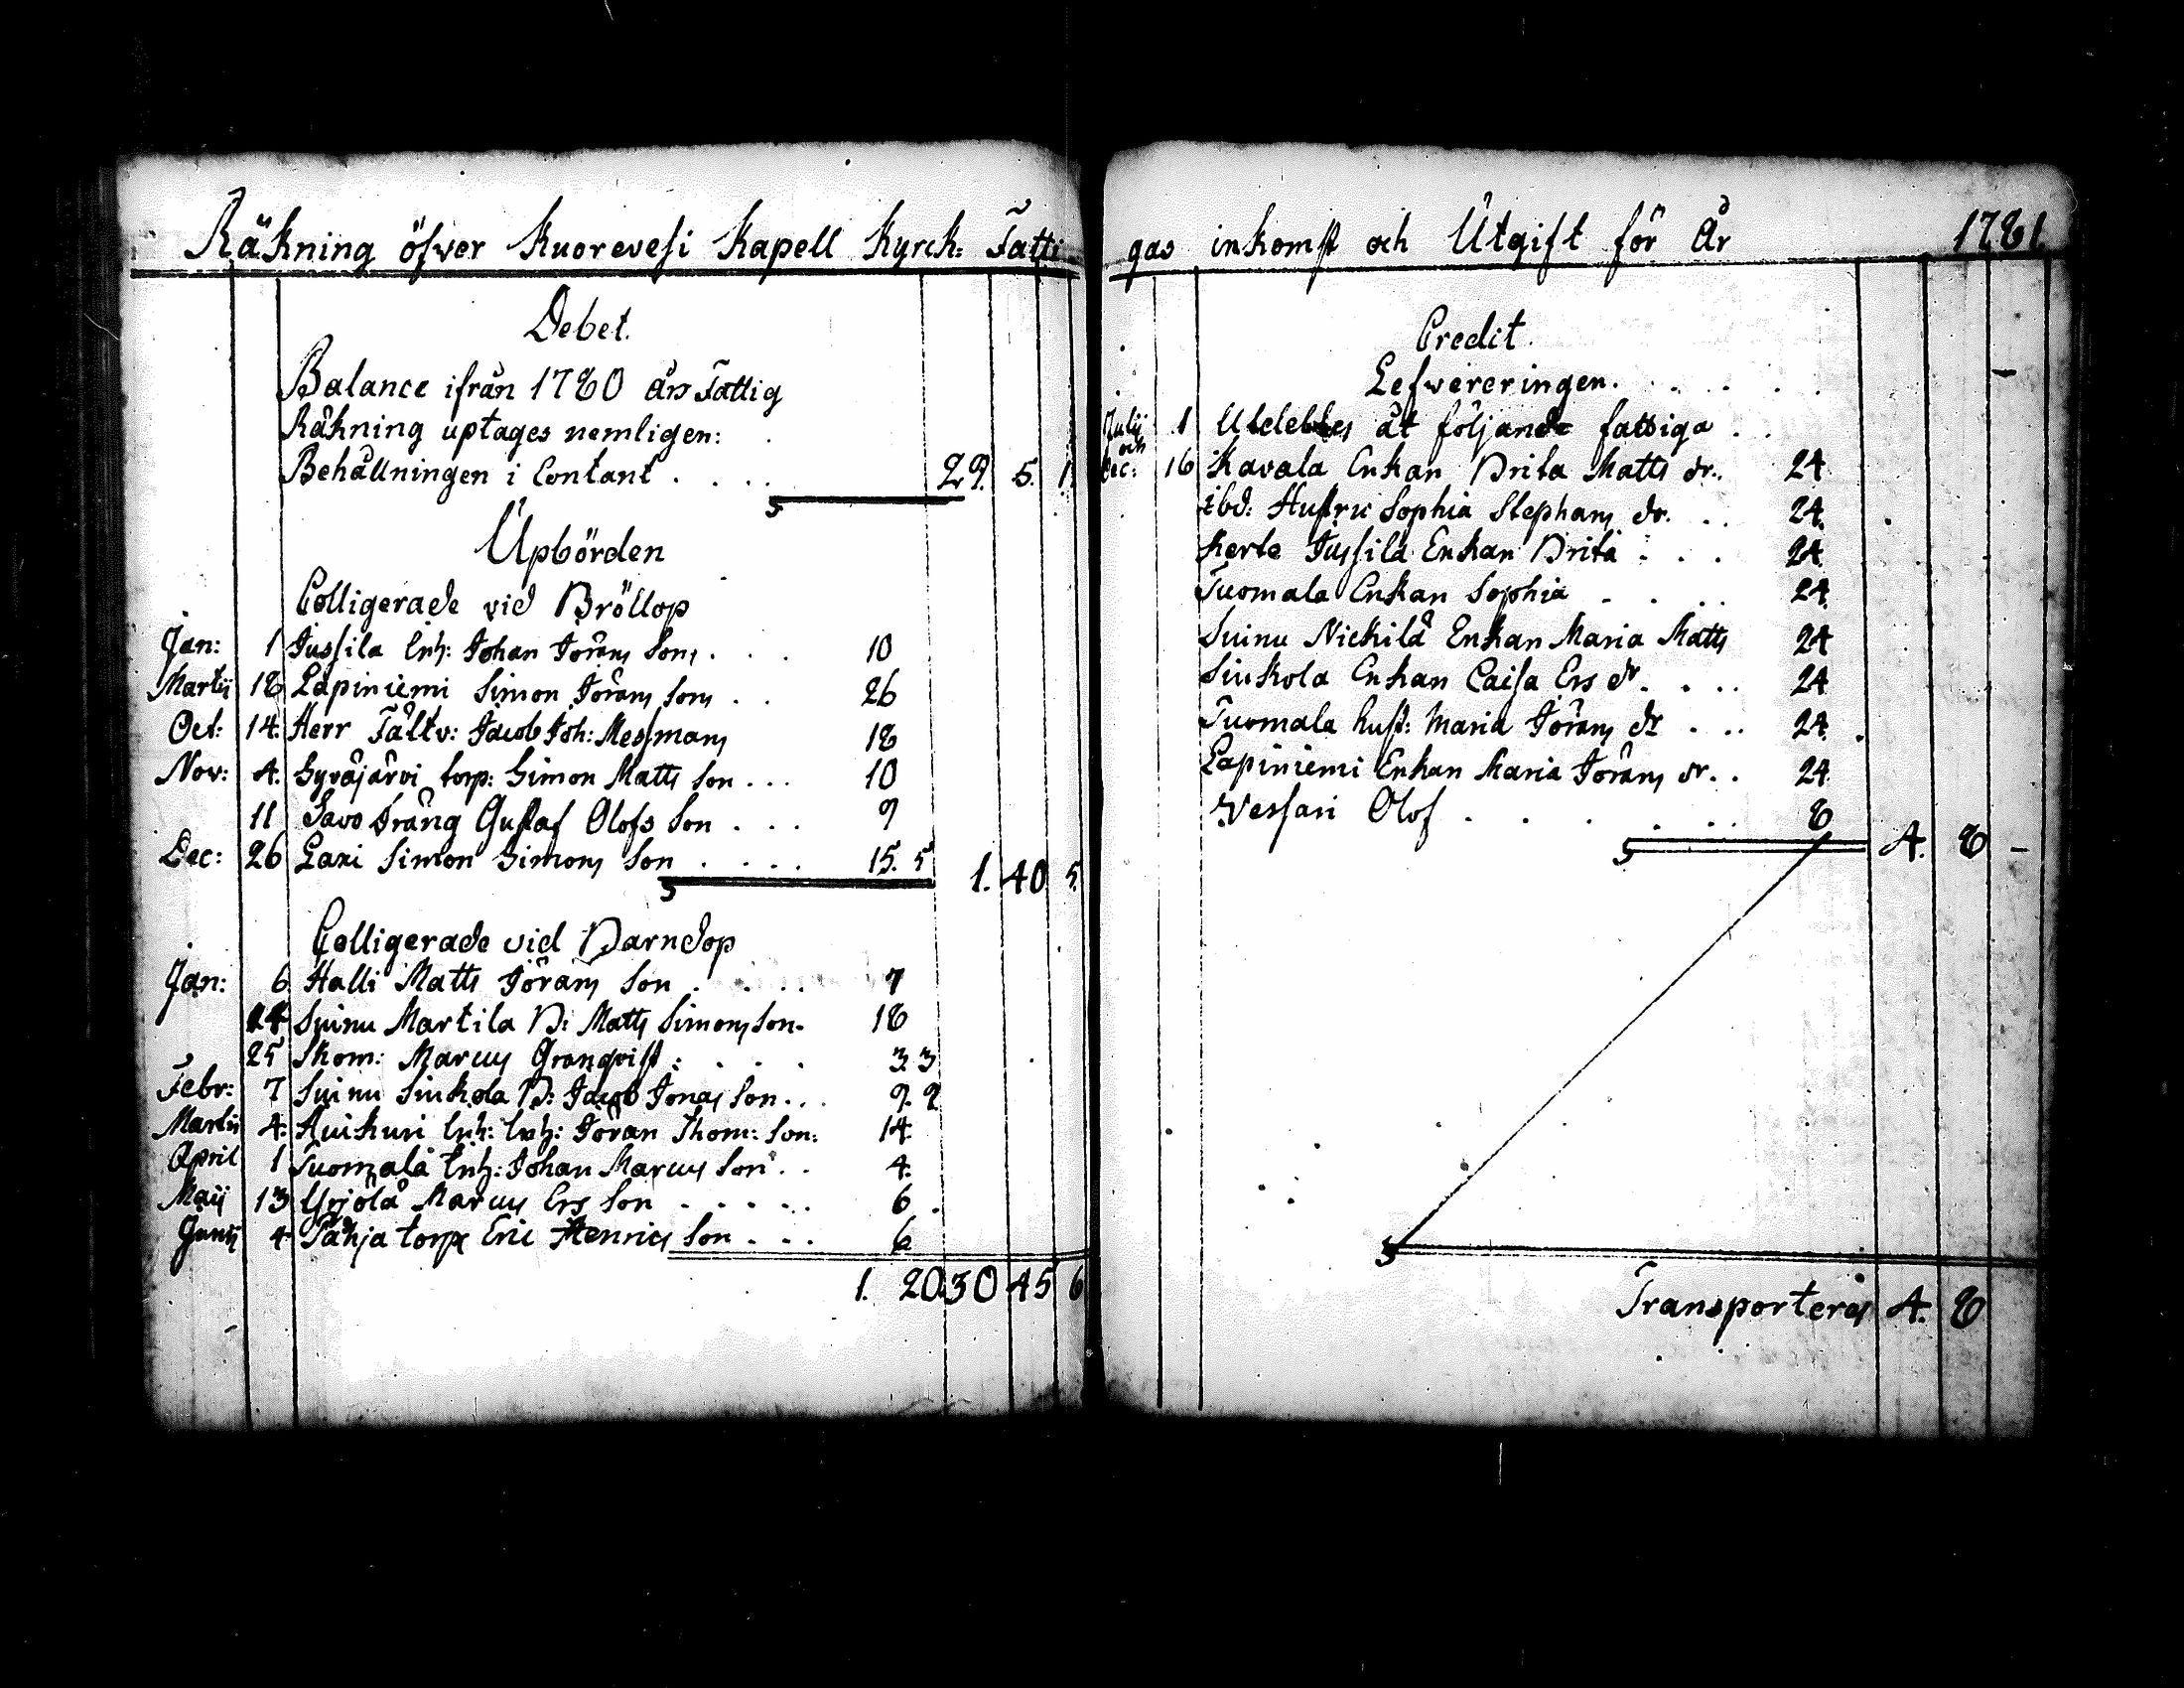 Räkning öfver Kuorevesi Kapell Kyrck: Fatti
Debet.
Balance ifrån 1780 års Fattig
Räkning uptages nemligen:
Behållningen i Contant . . . . 29. 5. 1.
Upbörden
Colligerade vid Bröllop
Jan: 1 Jussila Inh: Johan Jörans Sons . . . 10
Martij 18 Lapiniemi Simon Jörans Sons . . 26
Oct: 14. Herr Fältv: Jacob Joh: Messmans 18
Nov: 4. Syväjärvi torp: Simon Matts Son . . . 10
11 Savo Dräng Gustaf Olofs Son . . . 9
Dec: 26 Lari Simon Simons Son . . . . 15. 5 1. 40 5.
Colligerade vid Barndop
Jan: 6 Halli Matts Jörans Son . . . . 7
14 Suinu Martila B: Matts Simons Son. 18
25 Skom: Marcus Granqvist : . . . 3. 3
Febr: 7 Suinu Sinkola B: Jacob Jonas Son . . . 9. 2
Martii 4. Auikuri Inh: Inh: Jöran Thom: Son. 14.
April 1 Tuomala Inh: Johan Marcus Son . . 4.
Maij 13 Yrjölä Marcus Ers Son . . . . . 6.
Junij 4 Tähjä torp Eric Henrics Son . . . 6
1. 20. 30 45 6
gas inkomst och Utgift för År 1781
Credit.
Lefvereringen. . . . . —
Julij 1 Utdeltes åt följande fattiga . .
och
Dec: 16 Kavala Enkan Brita Matts dr. 24
ibd: Hustru Sophia Stephans dr. . . 24.
Kerte Jussila Enkan Brita . . . 24
Tuomala Enkan Sophia . . . . 24.
Suinu Nickilä Enkan Maria Matts 24
Sinkola Enkan Caisa Ers dr. . . . 24
Tuomala hust: Maria Jörans dr . . . 24.
Lapiniemi Enkan Maria Jörans dr. . 24.
Vessari Olof . . . . . . 8
4. 8 —
Transporteras 4. 8